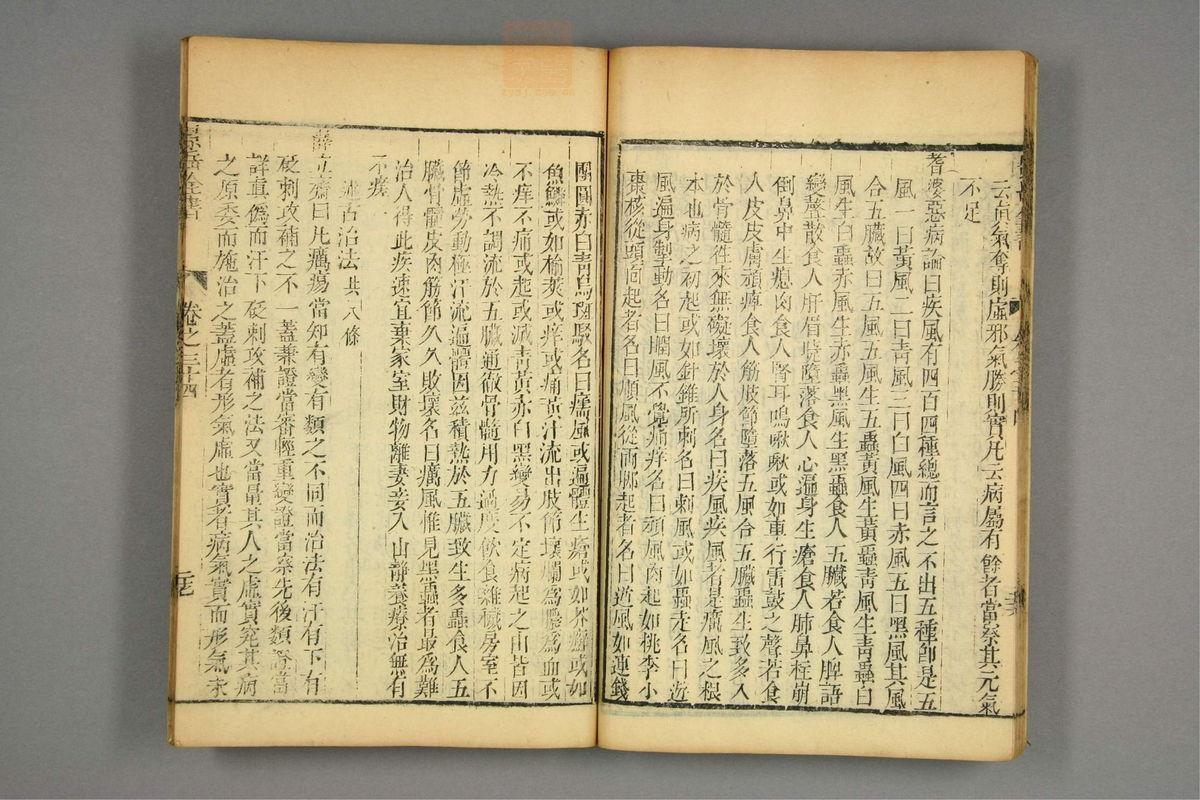 云眞氣奪則虛邪氣勝則實凡云病屬有餘者當察其元氣
不足
耆婆惡病論曰疾風有四百四種總而言之不出五種卽是五
風一曰黃風二曰靑風三曰白風四曰赤風五曰黑風其風
合五臟故曰五風五風生五蟲黃風生黃蟲靑風生靑蟲白
風生白蟲赤風生赤蟲黑風生黑蟲食人五臟若食人脾語
變聲散食人肝眉睫墮落食人心遍身生瘡食人肺鼻柱崩
倒鼻中生瘜肉食人腎耳鳴啾啾或如車行雷鼓之聲若食
人皮皮膚頑痺食人筋肢節墮落五風合五臟蟲生致多入
於骨髓徃來無礙壞於人身名曰疾風疾風者是癘風之根
本也病之初起或如針錐所刺名曰刺風或如蟲走名曰遊
風遍身掣動名曰瞤風不覺痛痒名曰頑風肉起如桃李小
棗核從頭面起者名曰順風從兩脚起者名曰逆風如連錢
團圓赤白靑烏斑駁名曰癘風或遍體生瘡或如疥癬或如
魚鱗或如榆莢或痒或痛黃汁流出皮節壞爛爲膿爲血或
不痒不痛或起或滅靑黃赤白黑變易不定病起之由皆因
冷熱不調流於五臟通徹骨髓用力過度飲食雜穢房室不
節虛勞動極汗流遍體因茲積熱於五臟致生多蟲食人五
臟骨髓皮肉筋節久久敗壞名曰癘風惟見黑蟲者最爲難
治人得此疾速宜棄家室財物離妻妾入山靜養療治無有
不瘥
述古治法共八條
薛立齋曰凡癘瘍當知有變有類之不同而治法有汗有下有
砭刺攻補之不一蓋兼證當審輕重變證當察先後類證當
詳眞僞而汗下砭刺攻補之法又當量其人之虛實究其病
之原委而施治之蓋虛者形氣虛也實者病氣實而形氣
卷之三十四